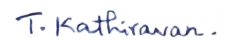 T. Kathiravan.